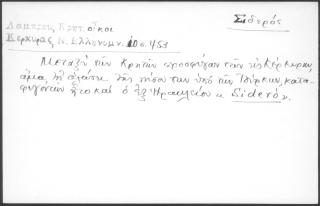 Σιδερός
Λάμπρου, Κρητ. οἶκοι
Κερκύρας, Ν. Ἑλληνομν. 10 σ. 453
Μεταξὺ τῶν Κρητῶν προσφύγων τῶν εἰς Κέρκυραν,
ἅμα τῇ ἁλώσει τῆς νήσου των ὑπὸ τῶν Τούρκων, κατα-
φυγόντων ἦτο καὶ ὁ ἐξ Ἡρακλείου κ. Sideró ν.